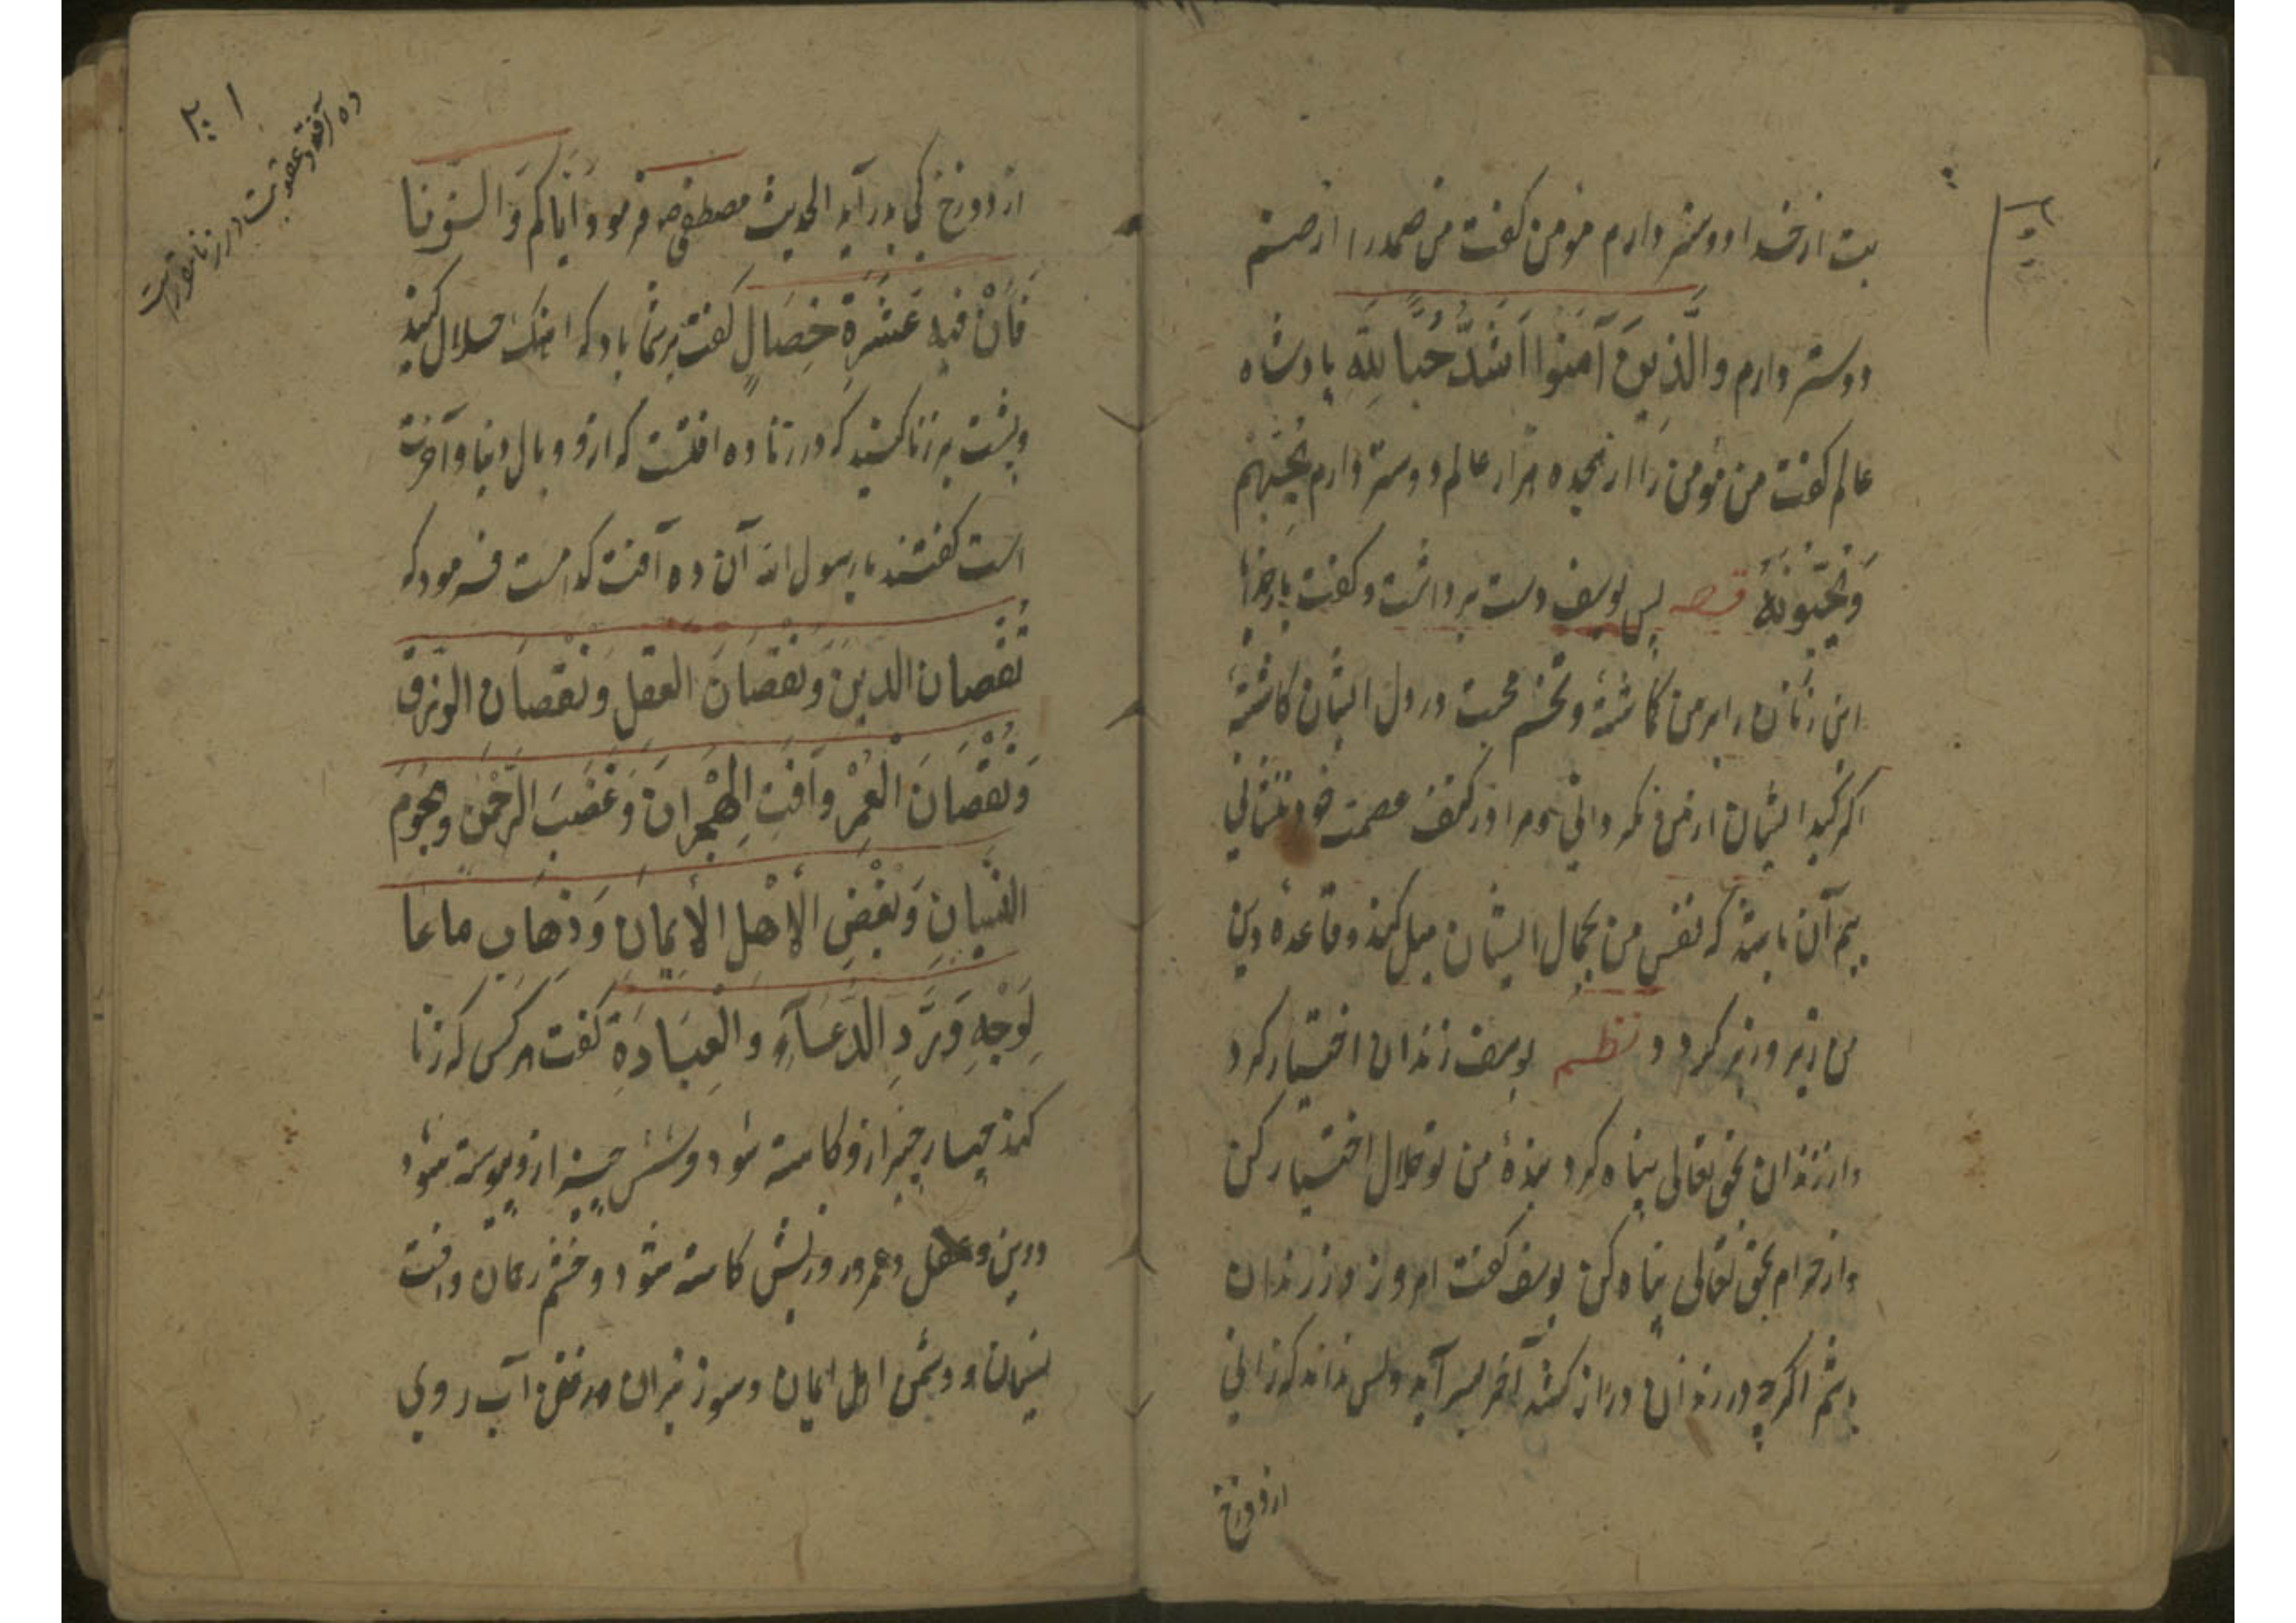 بت از خدا دوستر دارم مؤمن گفت من صمد را از صنم
دوستر دارم والَّذِينَ آمَنُوا اَشَدُّ حُبًّا لِلّهِ پادشاه
عالم گفت من مؤمن را از هجده هزار عالم دوستر دارم يُحِبُّهُمْ
وَيُحِبُّونَهُ قصه پس یوسف دست برداشت و گفت بار خدایا
این زنان را بر من کاشتهٔ و تخم محبت در دل ایشان کاشتهٔ
اگر کید ایشان از من نگردانی و مرا در کنف عصمت خود ننشانی
بیم آن باشد که نفس من بجمال ایشان میل کند و قاعدهٔ دین
من زیر و زبر گردد نظم یوسف زندان اختیار کرد
و از زندان بحق تعالی پناه کرد بندهٔ من تو حلال اختیار کن
و از حرام بحق تعالی پناه کن یوسف گفت امروز در زندان
باشم اگرچه در زندان دراز کشد آخر بسر آید و کس نداند که زانی
از دوزخ
۲۰۱
ده آفة و عقوبت در زنا مقررست
از دوزخ کی بدر آید الحدیث مصطفی صه فرمود اِیَّاکُم وَالزِّنا
فَاِنَّ فیهِ عَشَرَةَ خِصَالٍ گفت بر شما باد که اهنک حلال کنید
و پشت بر زنا کنید که در زنا ده افتست که ازو وبال دنیا و آخرت
است گفتند یا رسول الله آن ده آفت کدامست فرمود که
نُقْصان الدینِ وَنُقْصَانَ العقل وَنُقْصَانِ الرزق
وَنُقْصَانَ الْعُمْرِ وَآفَتِ الهِجْرانِ وَغَضَبَ الرَّحْمنِ وهجوم
النسیانِ وَبُغْضِ الأَهْلِ الأِیمَانِ وَذِهَابِ ماءِ
لِوَجْهِ وَرَدِّ الدُّعَآءِ والْعِبَادَةِ گفت هر کس که زنا
کند چهار چیز ازو کاسته شود و شش چیز ازو پیوسته شود
در دین و عقل و عمر و روزیش کاسته شود و خشم رحمان و افت
نسیان و دشمن اهل ایمان و سوز نیران و رفتن آب روی